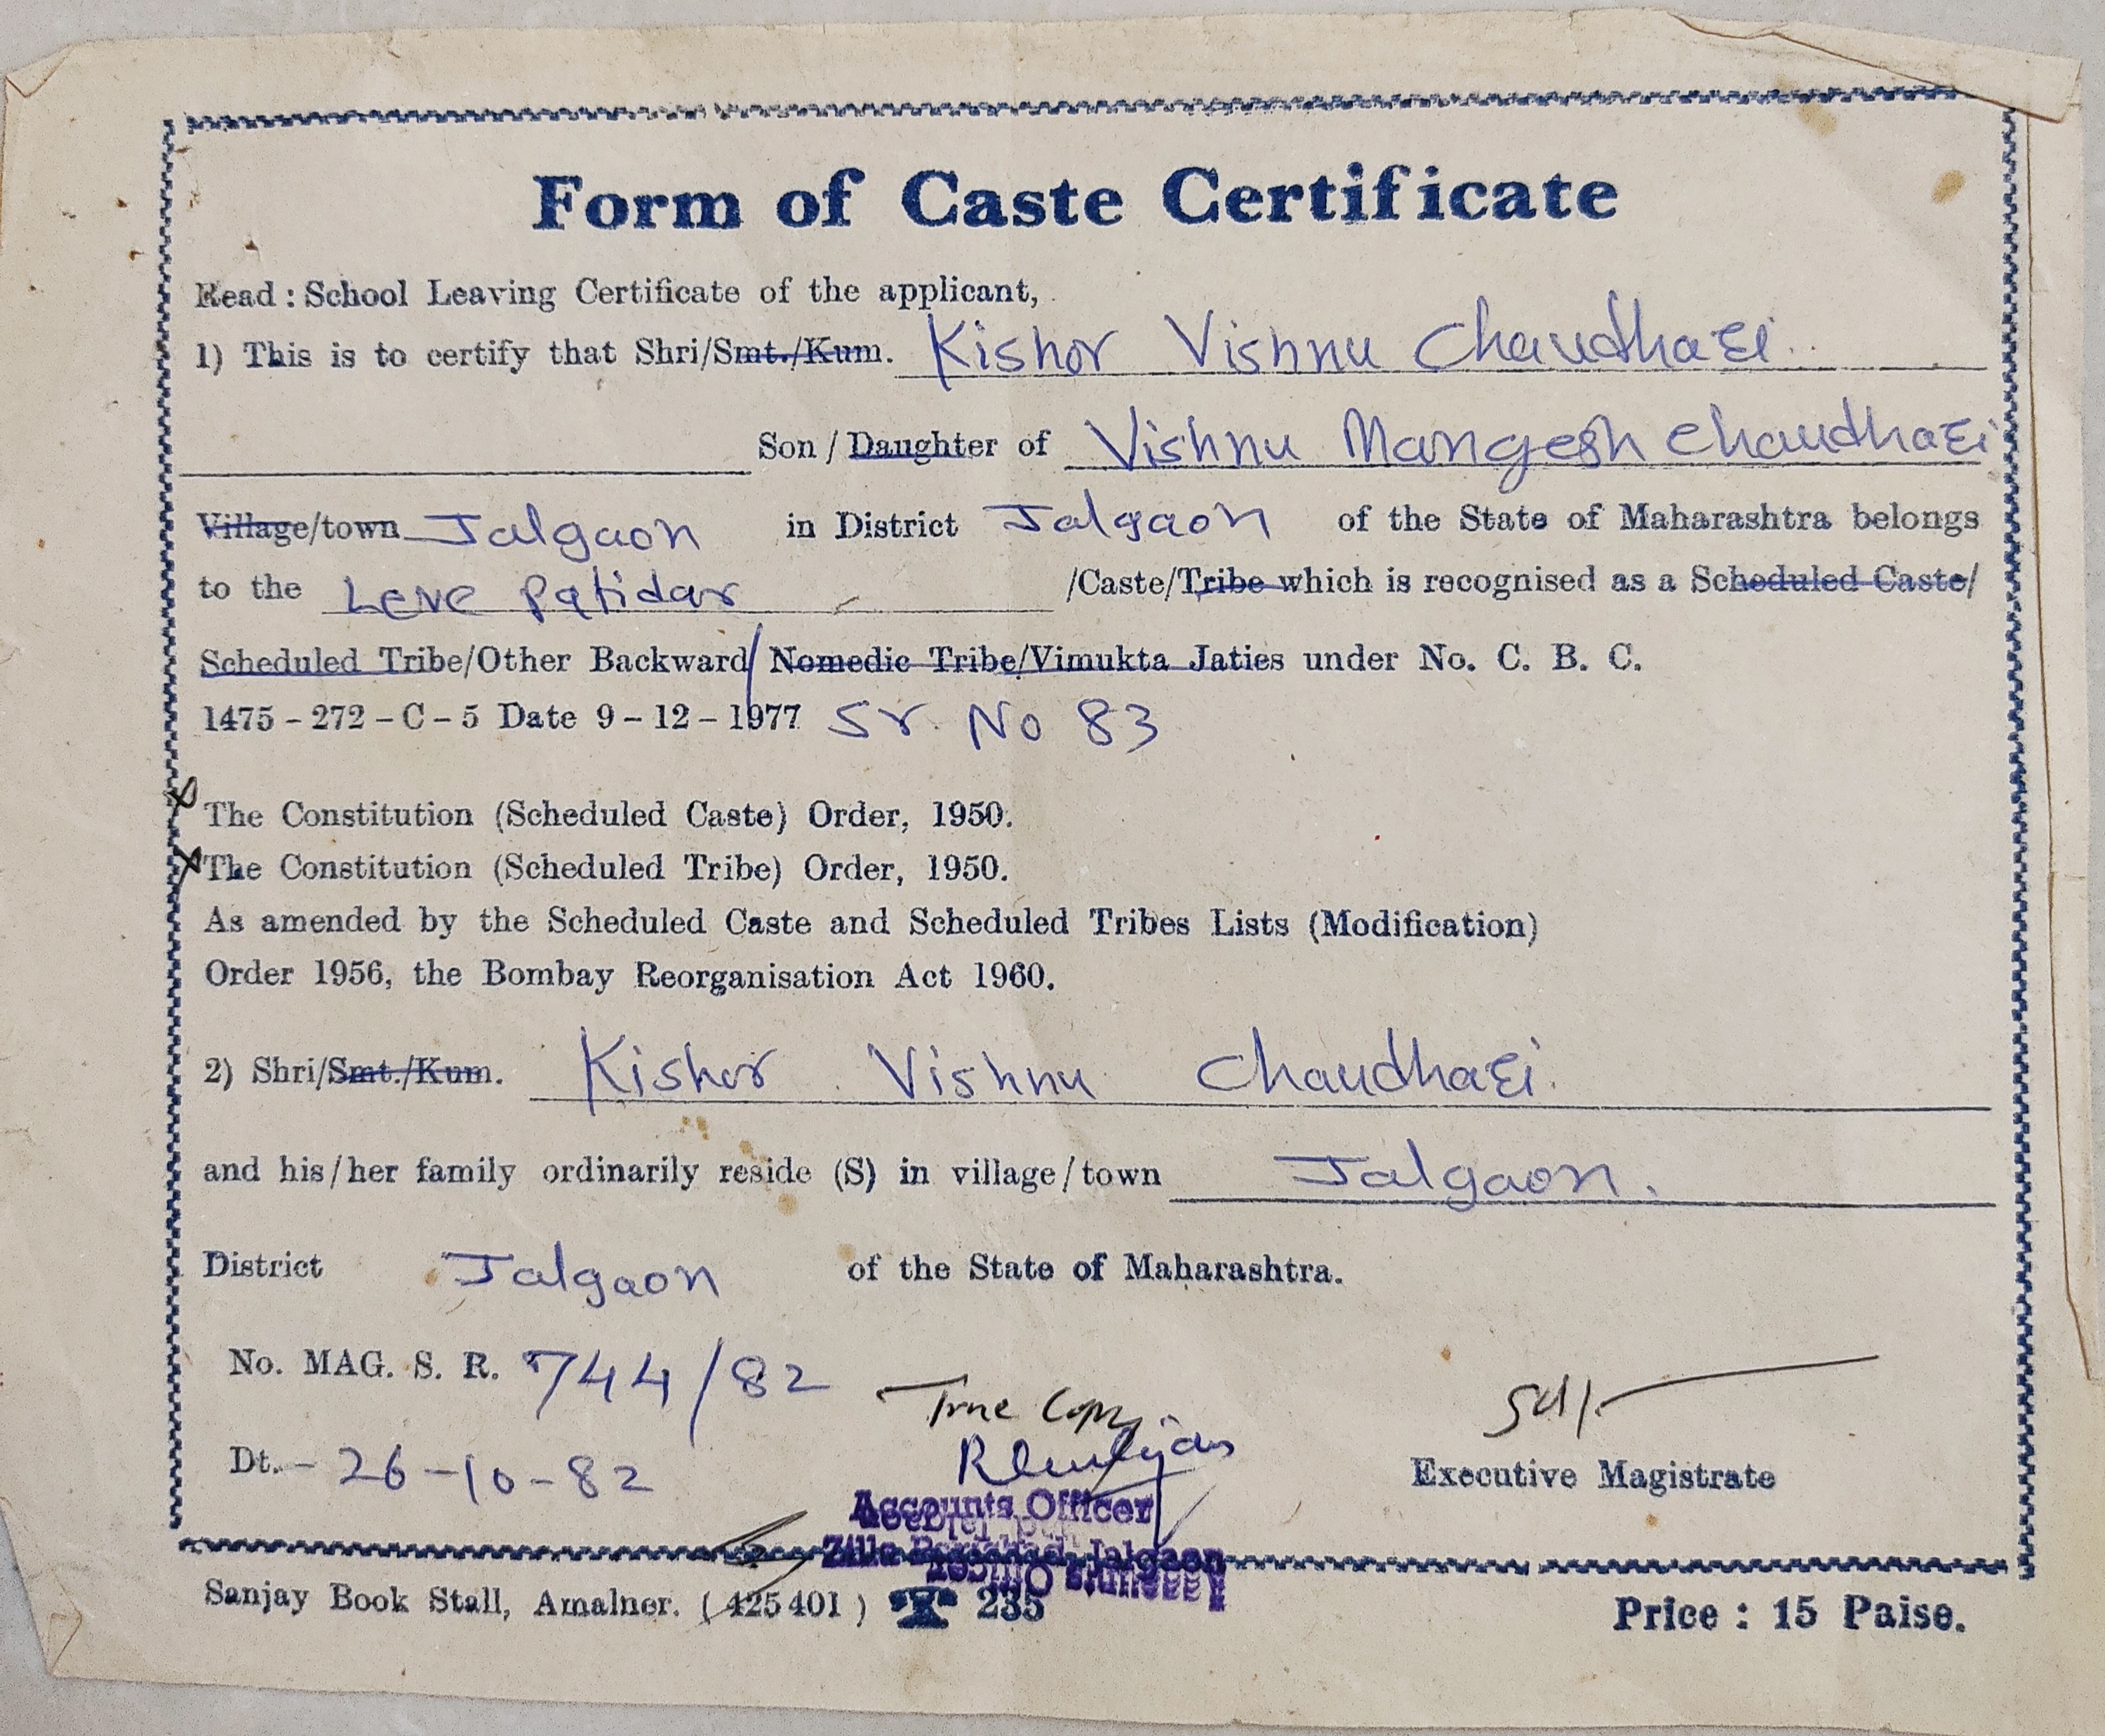 Form of Caste Certificate
Read : School Leaving Certificate of the applicant,
1) This is to certify that Shri/Smt./Kum. Kishor Vishnu Chaudhari
Son / Daughter of Vishnu Mangesh Chaudhari
Village/town Jalgaon in District Jalgaon of the State of Maharashtra belongs
to the Leve Patidar /Caste/Tribe which is recognised as a Scheduled Caste/
Scheduled Tribe/Other Backward/ Nomedic Tribe/Vimukta Jaties under No. C. B. C.
1475 - 272 - C - 5 Date 9 - 12 - 1977 Sr. No 83
The Constitution (Scheduled Caste) Order, 1950.
The Constitution (Scheduled Tribe) Order, 1950.
As amended by the Scheduled Caste and Scheduled Tribes Lists (Modification)
Order 1956, the Bombay Reorganisation Act 1960.
2) Shri/Smt./Kum. Kishor Vishnu Chaudhari.
and his/her family ordinarily reside (S) in village/town Jalgaon.
District Jalgaon of the State of Maharashtra.
No. MAG. S. R. 744/82
True Copy
Sd/-
Dt. - 26-10-82
Executive Magistrate
Accounts Officer
Zilla Parishad, Jalgaon
Sanjay Book Stall, Amalner. ( 425401 ) ☎ 235
Price : 15 Paise.